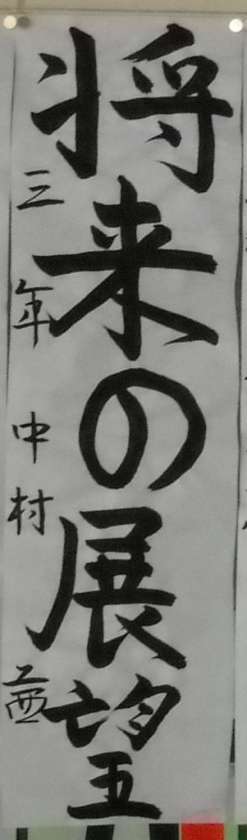 将来の展望
三年 中村